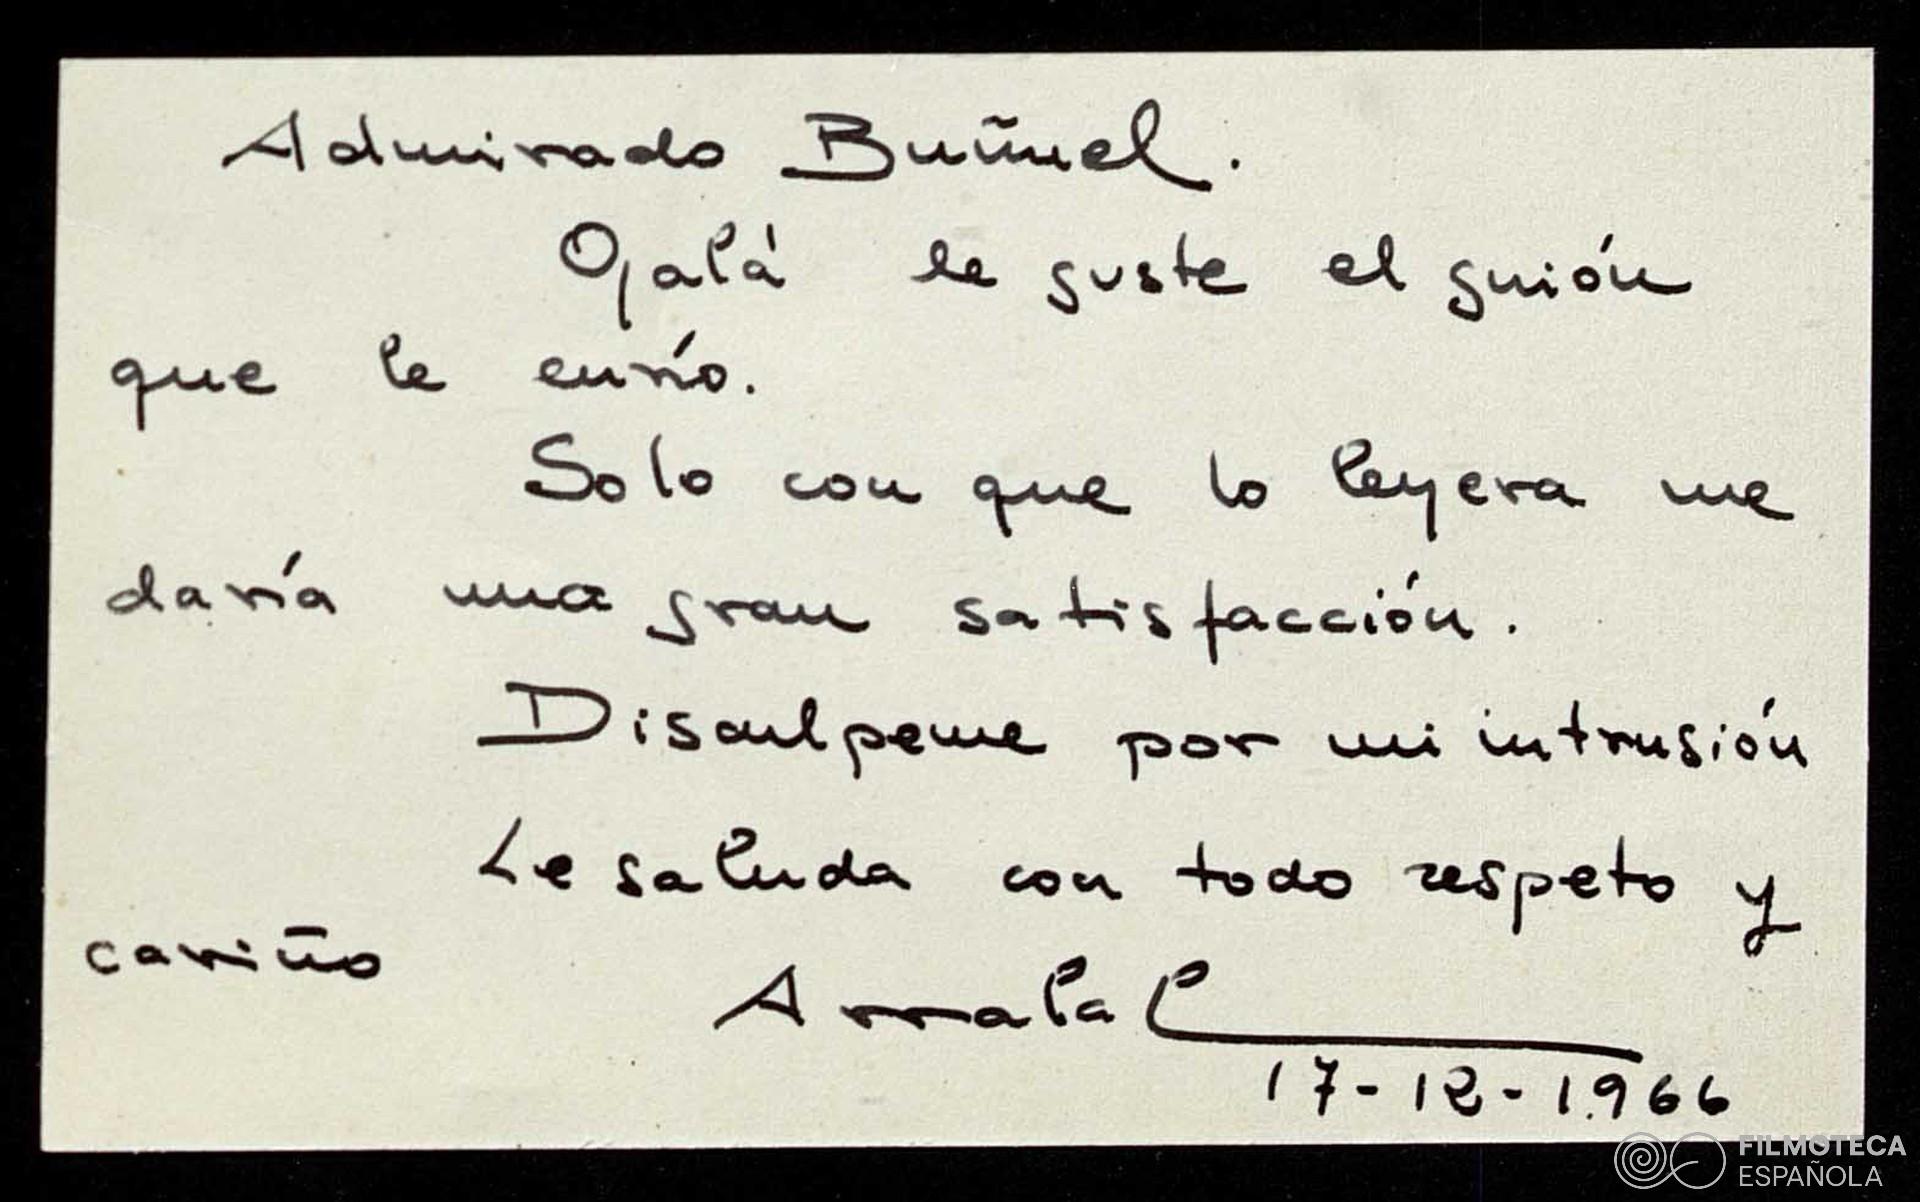 Admirado Buñuel.
Ojalá le guste el guión
que le envío.
Solo con que lo leyera me
daría una gran satisfacción.
Disculpeme por mi intrusión
Le saluda con todo respeto y
cariño
Arrabal
17-12-1.966
FILMOTECA
ESPAÑOLA